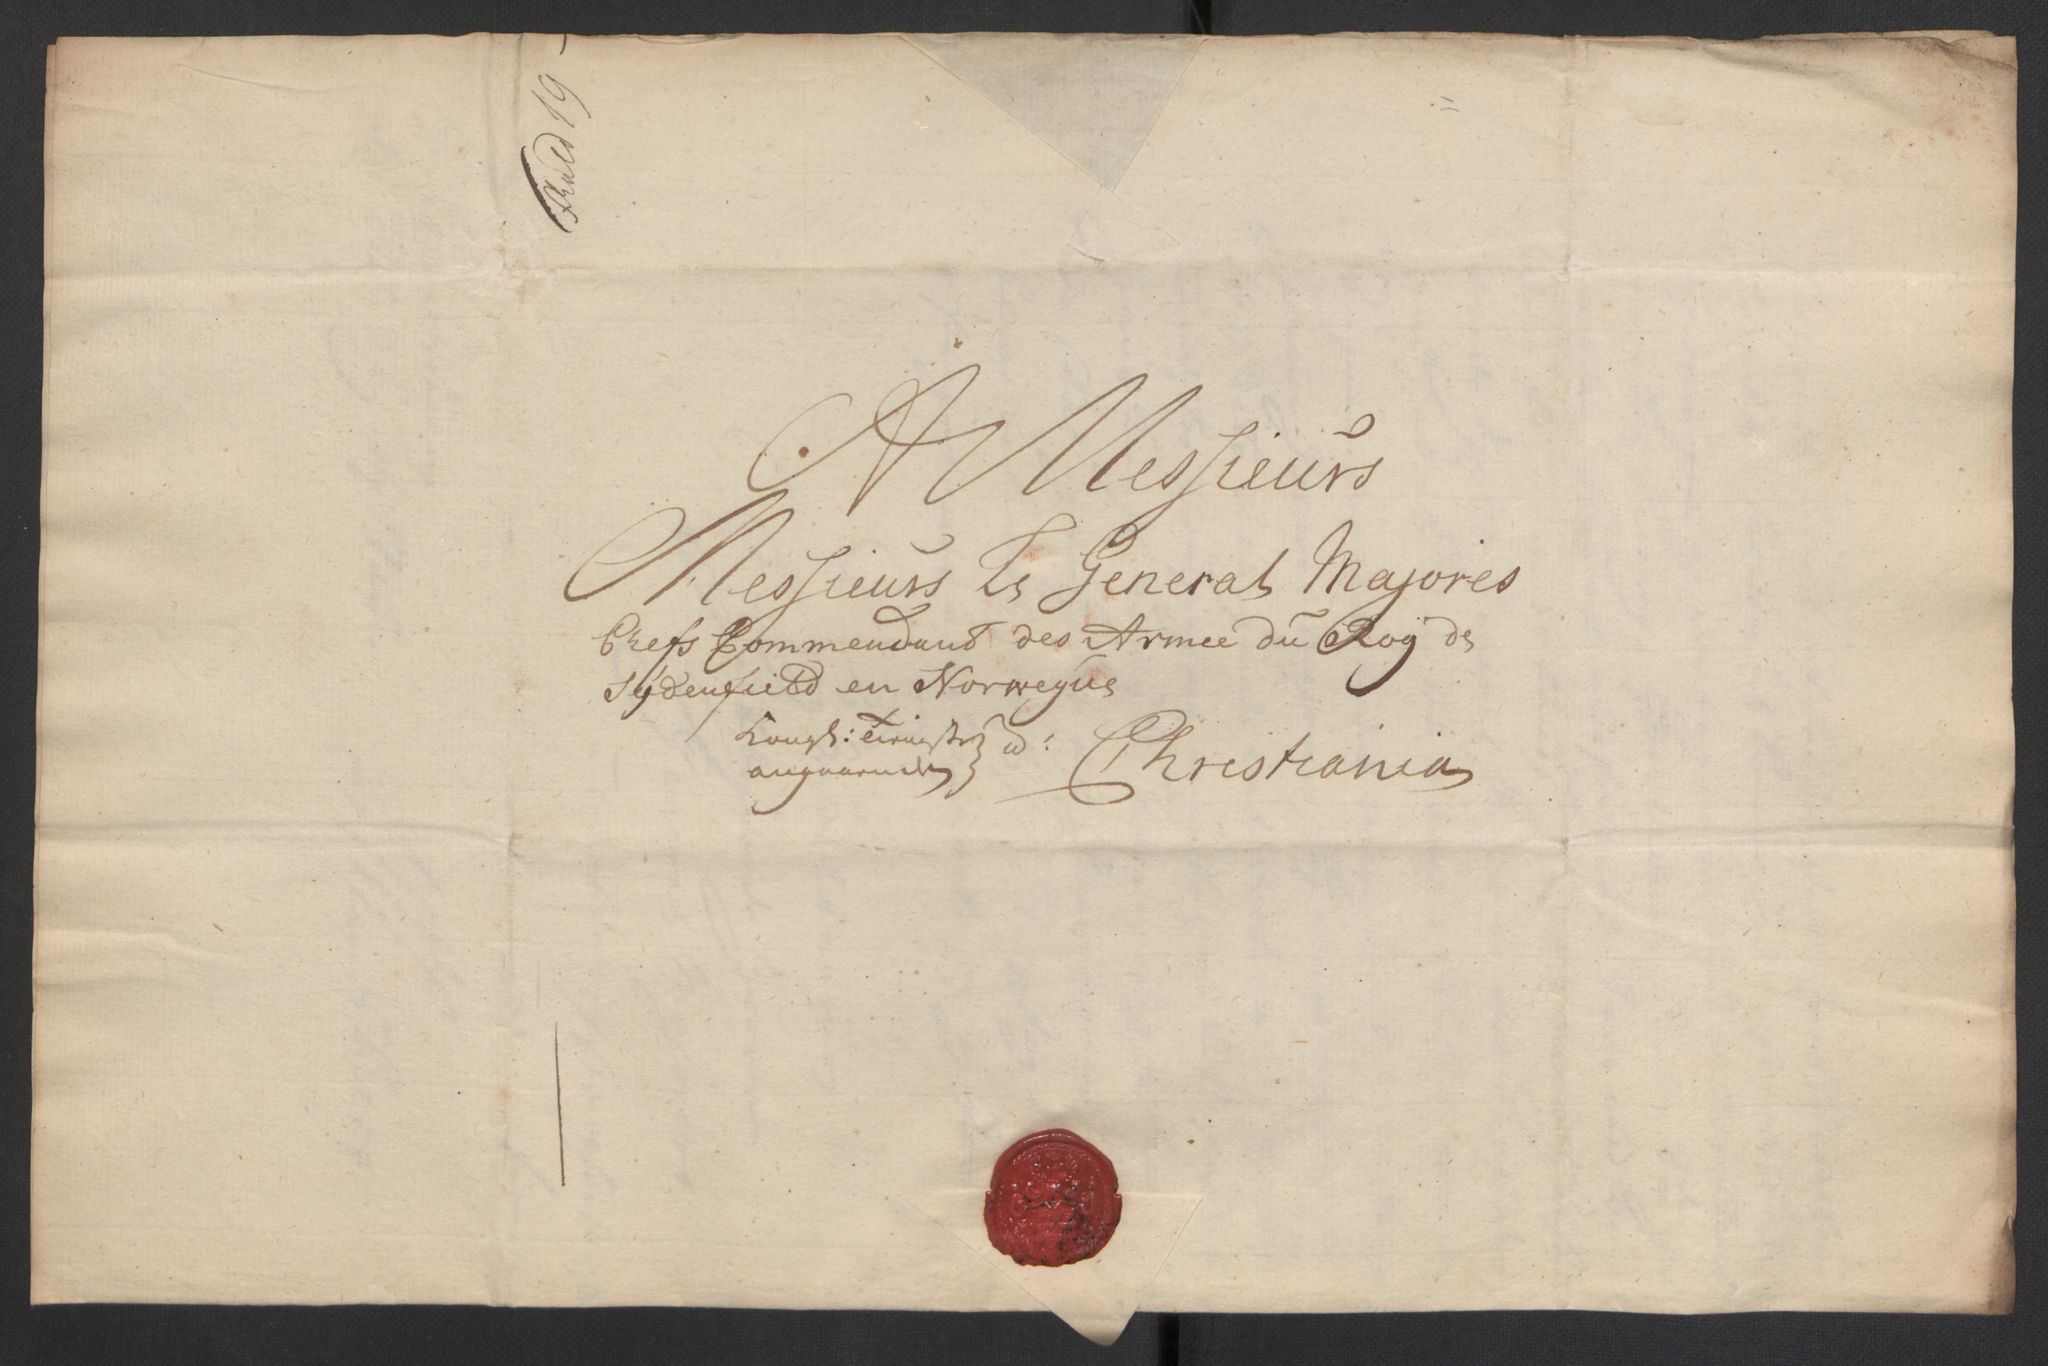 A Messieurs
Messieurs Le General Majores
Chefs Commendant des Armee du Roy de
Sydenfield en Norwegue
Kongl: Tieniste
angaaende
a: Christiania
19